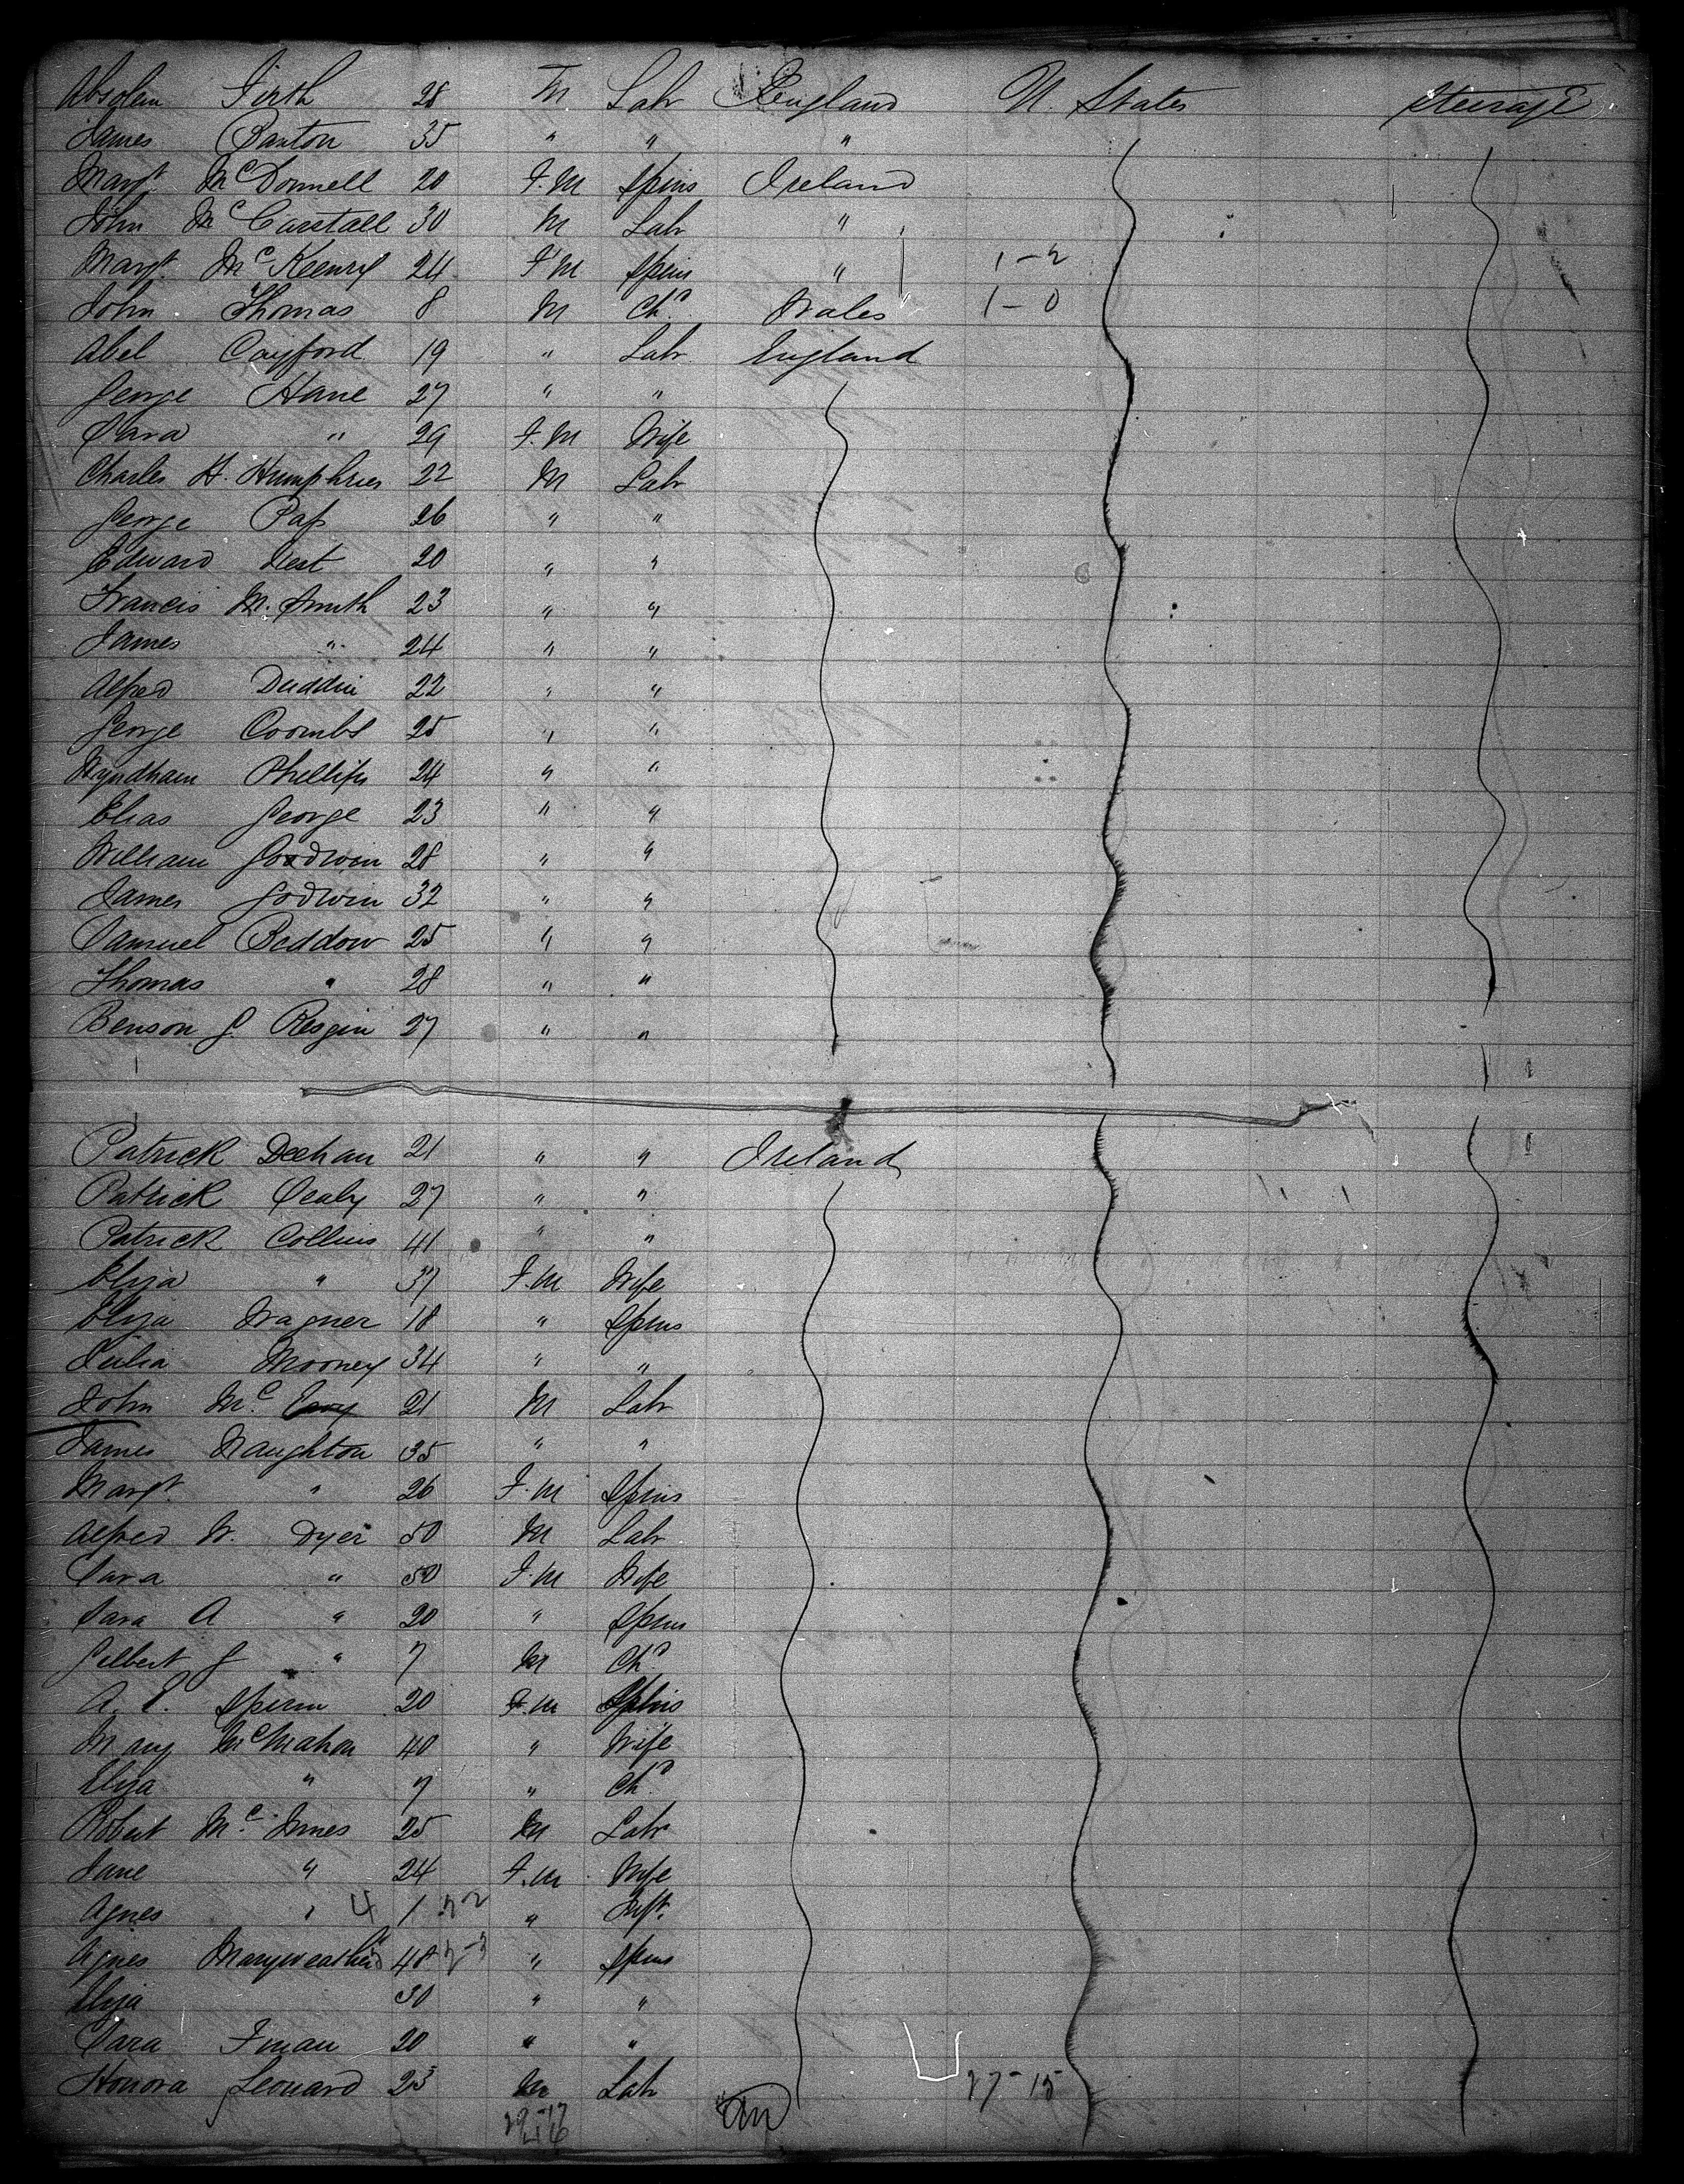 Absolem Firth 28 M Labr England U. States Steerage
James Barton 35 " " "
Margt McDonnell 20 F.M Spins Ireland
John McCarstall 30 M Labr "
Margt. McKeenry 24 F.M Spins " 1-2
John Thomas 8 M Chd Wales 1-0
Abel Cayford 19 " Labr England
George Hane 27 " "
Sara " 29 F.M Wife
Charles H. Humphries 22 M Labr
George Pass 26 " "
Edward 20 " "
Francis M. Smith 23 " "
James " 24 " "
Alfred Duddin 22 " "
George Coombs 25 " "
Wyndham Phillips 24 " "
Elias George 23 " "
William Goodwin 28 " "
James Godwin 32 " "
Samuel Beddow 25 " "
Thomas " 28 " "
Benson G. 27 " "
Patrick Deehan 21 " " Ireland
Patrick 27 " "
Patrick Collins 41 " "
Eliza " 37 F.M Wife
Eliza Wagner 18 " Spins
Julia Mooney 34 " "
John Mc. 21 M Labr
James Naughton 35 " "
Margt. " 26 F.M Spins
Alfred W. Dyer 50 M Labr
Sara " 50 F.M Wife
Sara A " 20 " Spins
Gilbert G " 7 M Chd
20 F.M Spins
Mary McMahon 40 " Wife
Eliza " 7 " Chd
Robert Mc. Innes 25 M Labr
Jane " 24 F.M Wife
Agnes " 4 1 " Inft.
Agnes 48 " Spins
Eliza 30 " "
Sara 20 " "
Honora Leonard 23 M Labr 27-15